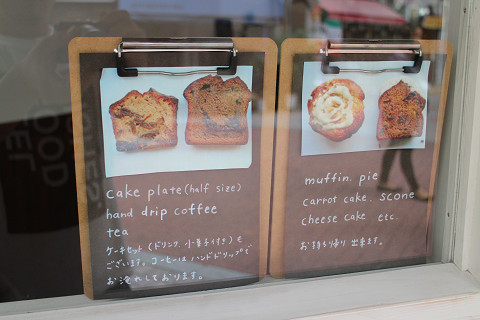 cake plate (half size)
hand drip coffee
tea
ケーキセット(ドリンク、小菓子付き)も
ございます。コーヒーはハンドドリップで
お淹れしております。
muffin. pie
carrot cake. scone
cheese cake etc.
お持ち帰り出来ます。